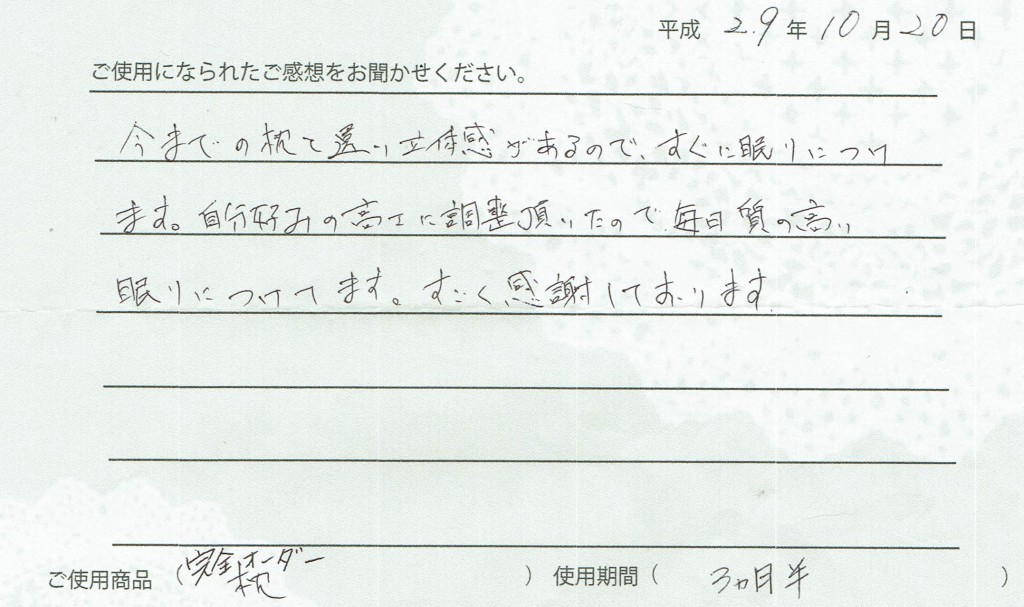 平成 29年 10月 20日
ご使用になられたご感想をお聞かせください。
今までの枕と違い立体感があるので、すぐに眠りにつけ
ます。自分好みの高さに調整頂いたので毎日質の高い
眠りにつけてます。すごく感謝しております。
ご使用商品 (完全オーダー枕) 使用期間 (3ヵ月半)